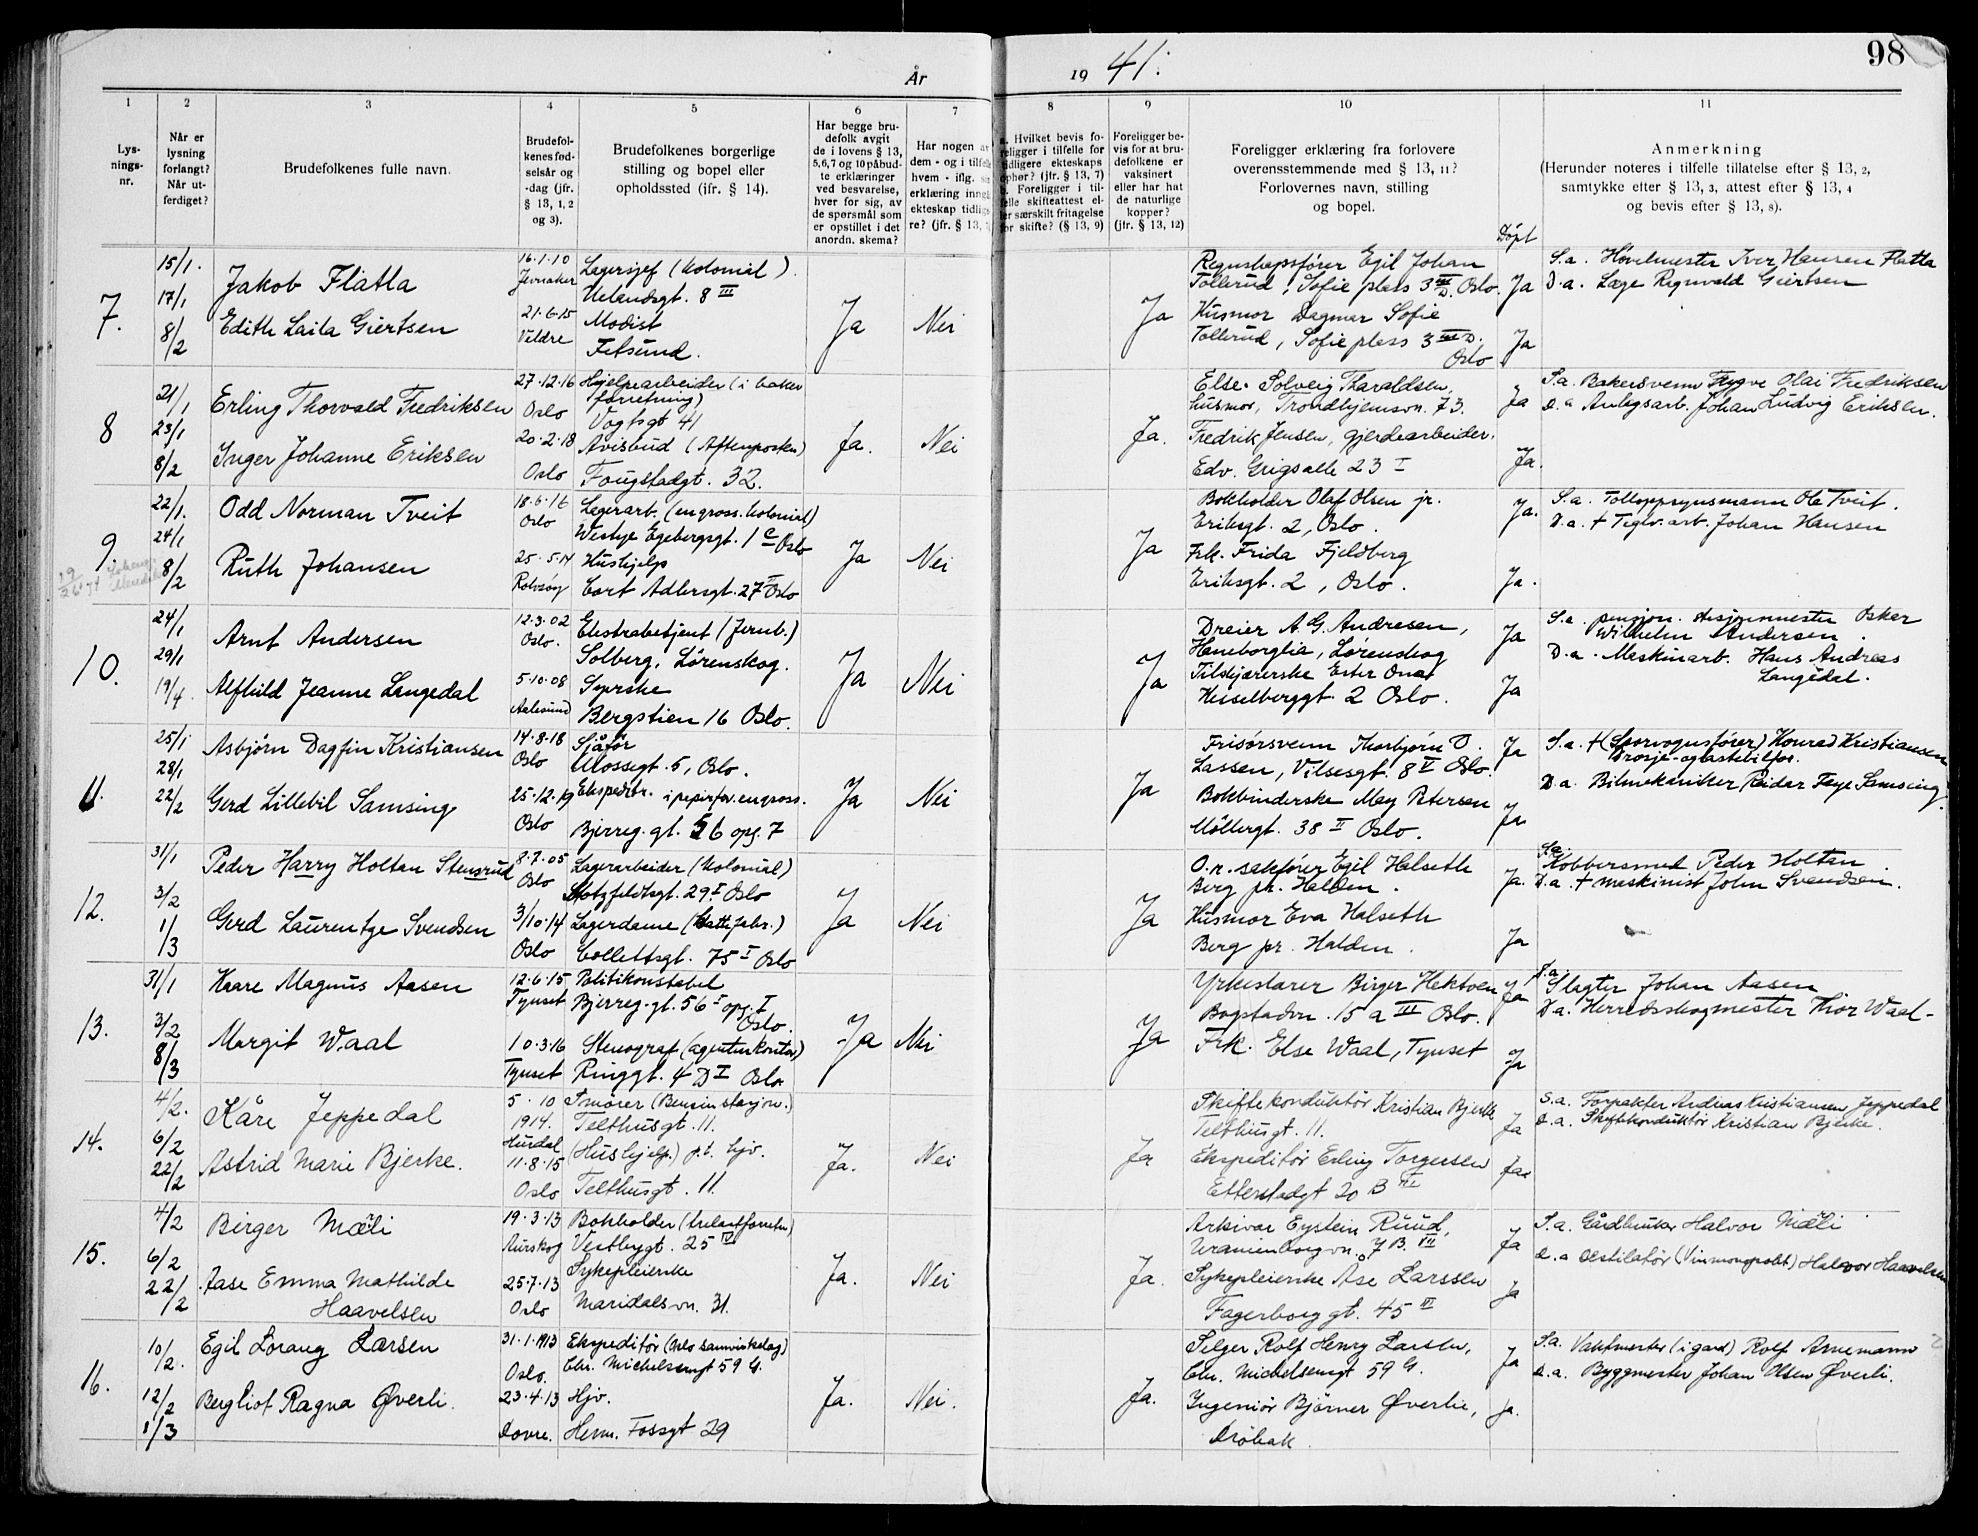 År 1941.
98
1
2
3
4
5
6
7
8
9
10
11
Lys-
nings-
nr.
Når er
lysning
forlangt?
Når ut-
ferdiget?
Brudefolkenes fulle navn.
Brudefol-
kenes fød-
selsår og
-dag (jfr.
§ 13, 1, 2
og 3).
Brudefolkenes borgerlige
stilling og bopel eller
opholdssted (jfr. § 14).
Har begge bru-
defolk avgit
de i lovens § 13,
5,6,7 og 10 påbud-
te erklæringer
ved besvarelse,
hver for sig, av
de spørsmål som
er opstillet i det
anordn. skema?
Har nogen av
dem - og i tilfelle
hvem - iflg.
erklæring inngått
ekteskap tidlige-
re? (jfr. § 13,
a. Hvilket bevis fo-
religger i tilfelle for
tidligere ekteskaps
ophør? (jfr. § 13, 7)
Foreligger i til-
felle skifteattest el-
ler særskilt fritagelse
for skifte? (§ 13, 9)
Foreligger be-
vis for at bru-
defolkene er
vaksinert
eller har hat
de naturlige
kopper?
(jfr. § 13, 12)
Foreligger erklæring fra forlovere
overensstemmende med § 13, 11?
Forlovernes navn, stilling
og bopel.
Døpt
Anmerkning
(Herunder noteres i tilfelle tillatelse efter § 13, 2,
samtykke efter § 13, 3, attest efter § 13, 4
og bevis efter § 13, 8).
7.
15/1.
17/1
8/2
Jakob Flatla
Edith Laila Giertsen
16.1.10
Jevnaker
21.6.15
Veldre
Lagersjef (kolonial).
Uelandsgt. 8 III
Modist
Fetsund.
Ja
Nei
Ja
Regnskapsfører Egil Johan
Tollerud, Sofie plass 3 III D. Oslo.
Husmor Dagmar Sofie
Tollerud, Sofie plass 3 III D.
Oslo
Ja
Ja
S.a. Høvelmester Iver Hansen Flatla
D.a. Læge Ragnvald Giertsen
8
21/1
23/1
8/2
Erling Thorvald Fredriksen
Inger Johanne Eriksen
27.12.16
Oslo
20.2.18
Oslo
Hjelpearbeider (i baker
forretning)
Vogtsgt 41
Avisbud (Aftenposten)
Fougstadgt. 32.
Ja.
Nei
Ja.
Else Solveig Tharaldsen,
husmor, Trondhjemsvn. 73.
Fredrik Jensen, gjerdearbeider.
Edv. Grigs alle 23 I
Ja
Ja.
S.a. Bakersvenn Trygve Olai Fredriksen
D.a Anlegsarb. Johan Ludvig Eriksen.
9.
22/1.
24/1
8/2
Odd Norman Tveit
Ruth Johansen
18.6.16
Oslo
25.5.14
Rolvsøy
Lagerarb. (en gross. kolonial)
Westye Egebergsgt. 1 c Oslo
Hushjelp
Cort Adlersgt. 27 II Oslo
Ja
Nei
Ja
Bokholder Olaf Olsen jr.
Eriksgt. 2, Oslo.
Frk. Frida Fjeldberg
Eriksgt. 2, Oslo.
Ja.
Ja.
S.a. Tolloppsynsmann Ole Tveit.
D.a. + Teglv.arb. Johan Hansen
10.
24/1
29/1
19/4.
Arnt Andersen
Alfhild Jeanne Langedal
12.3.02
Oslo.
5.10.08
Aalesund
Ekstrabetjent (Jernb.)
Solberg, Lørenskog.
Syerske
Bergstien 16 Oslo.
Ja
Nei
Ja
Dreier A. G. Andresen,
Haneborglia, Lørenskog
Tilskjærerske Ester Onar
Hesselberggt. 2 Oslo.
Ja
Ja
S.a. pensjon. stasjonmester Oskar
Wilhelm Andersen.
D.a. Maskinarb. Hans Andreas
Langedal.
11.
25/1
28/1
22/2
Asbjørn Dagfin Kristiansen
Gerd Lillebil Samsing
14.8.18
Oslo
25.12.19
Oslo
Sjåfør
Mossegt. 5, Oslo.
Ekspeditr. i papirfor. engross.
Bjerreg. gt. 56 opg. 7
Ja
Nei
Ja
Frisørsvenn Thorbjørn O.
Lassen, Vilsesgt. 8 V Oslo.
Bokbinderske May Petersen
Møllergt. 38 II Oslo.
Ja
Ja
S.a. + (Sporvognsfører) Konrad Kristiansen
Drosje- og lastebilfør.
D.a. Bilmekaniker Reidar Feye Samsing.
12.
31/1
3/2
1/3
Peder Harry Holtan Stensrud
Gerd Laurentze Svendsen
8.7.05
Oslo
3/10.14
Oslo
Lagerarbeider (kolonial)
Motzfeldtsgt. 29 I Oslo
Lagerdame (Hattefabr.)
Collettsgt. 75 I Oslo
Ja
Nei
Ja
O.r. sakfører Egil Halseth
Berg pr. Halden.
Husmor Eva Halseth
Berg pr. Halden.
Ja.
Ja
S.a.
Kobbersmed Peder Holtan
D.a. + maskinist John Svendsen.
13.
31/1
3/2
8/3
Kaare Magnus Aasen
Margit Waal
12.6.15
Tynset
10.3.16
Tynset
Politikonstabel
Bjerreg. gt. 56 I opg. I
Oslo.
Stenograf (agenturkontor)
Ringgt. 4 D I Oslo
Ja
Nei
Ja
Yrkeslærer Birger Hektoen
Bogstadvn. 15 a III Oslo.
Frk. Else Waal, Tynset
Ja
Ja
S.a.
Slagter Johan Aasen
D.a. Herredsskogmester Thor Waal-
14.
4/2.
6/2
22/2
Kåre Jeppedal
Astrid Marie Bjerke.
5.10
1914.
Hurdal
11.8.15
Oslo
Smører (Bensinstasjon.)
Telthusgt. 11.
(Hushjelp.) p.t. hjv.
Telthusgt. 11.
Ja.
Nei
Ja
Skiftekonduktør Kristian Bjerke
Telthusgt. 11.
Ekspeditør Erling Torgersen
Etterstadgt 20 B III
Ja
Jaa
S.a. Forpakter Andreas Kristiansen Jeppedal
D.a. Skiftekonduktør Kristian Bjerke.
15.
4/2
6/2
22/2
Birger Mæli
Aase Emma Mathilde
Haavelsen
19.3.13
Aurskog
25.7.13
Oslo
Bokholder (trelastforretn)
Vestbygt. 25 IV
Sykepleierske
Maridalsvn. 31.
Ja.
Nei
Ja.
Arkivar Eystein Ruud,
Uranienborgvn. 7 B. III
Sykepleierske Åse Larssen
Fagerborggt. 45 III
Ja
Ja
S.a. Gårdbruker Halvor Mæli
D.a Destilatør (Vinmonopolet) Halvor Haavelsen
16.
10/2.
12/2
1/3
Egil Lorang Larsen
Bergliot Ragna Øverli.
31.1.1913
Oslo.
23.4.13
Dovre.
Ekspeditør (Oslo samvirkelag)
Chr. Michelsensgt 59 G.
Hjv.
Herm. Fossgt 29
Ja.
Nei.
Ja.
Selger Rolf Henry Larsen,
Chr. Michelsensgt 59 G.
Ingeniør Bjørner Øverlie,
Drøbak.
Ja
Ja.
S.a. Vaktmester (i gård) Rolf Arnemann
D.a. Byggmester Johan Olsen Øverli.